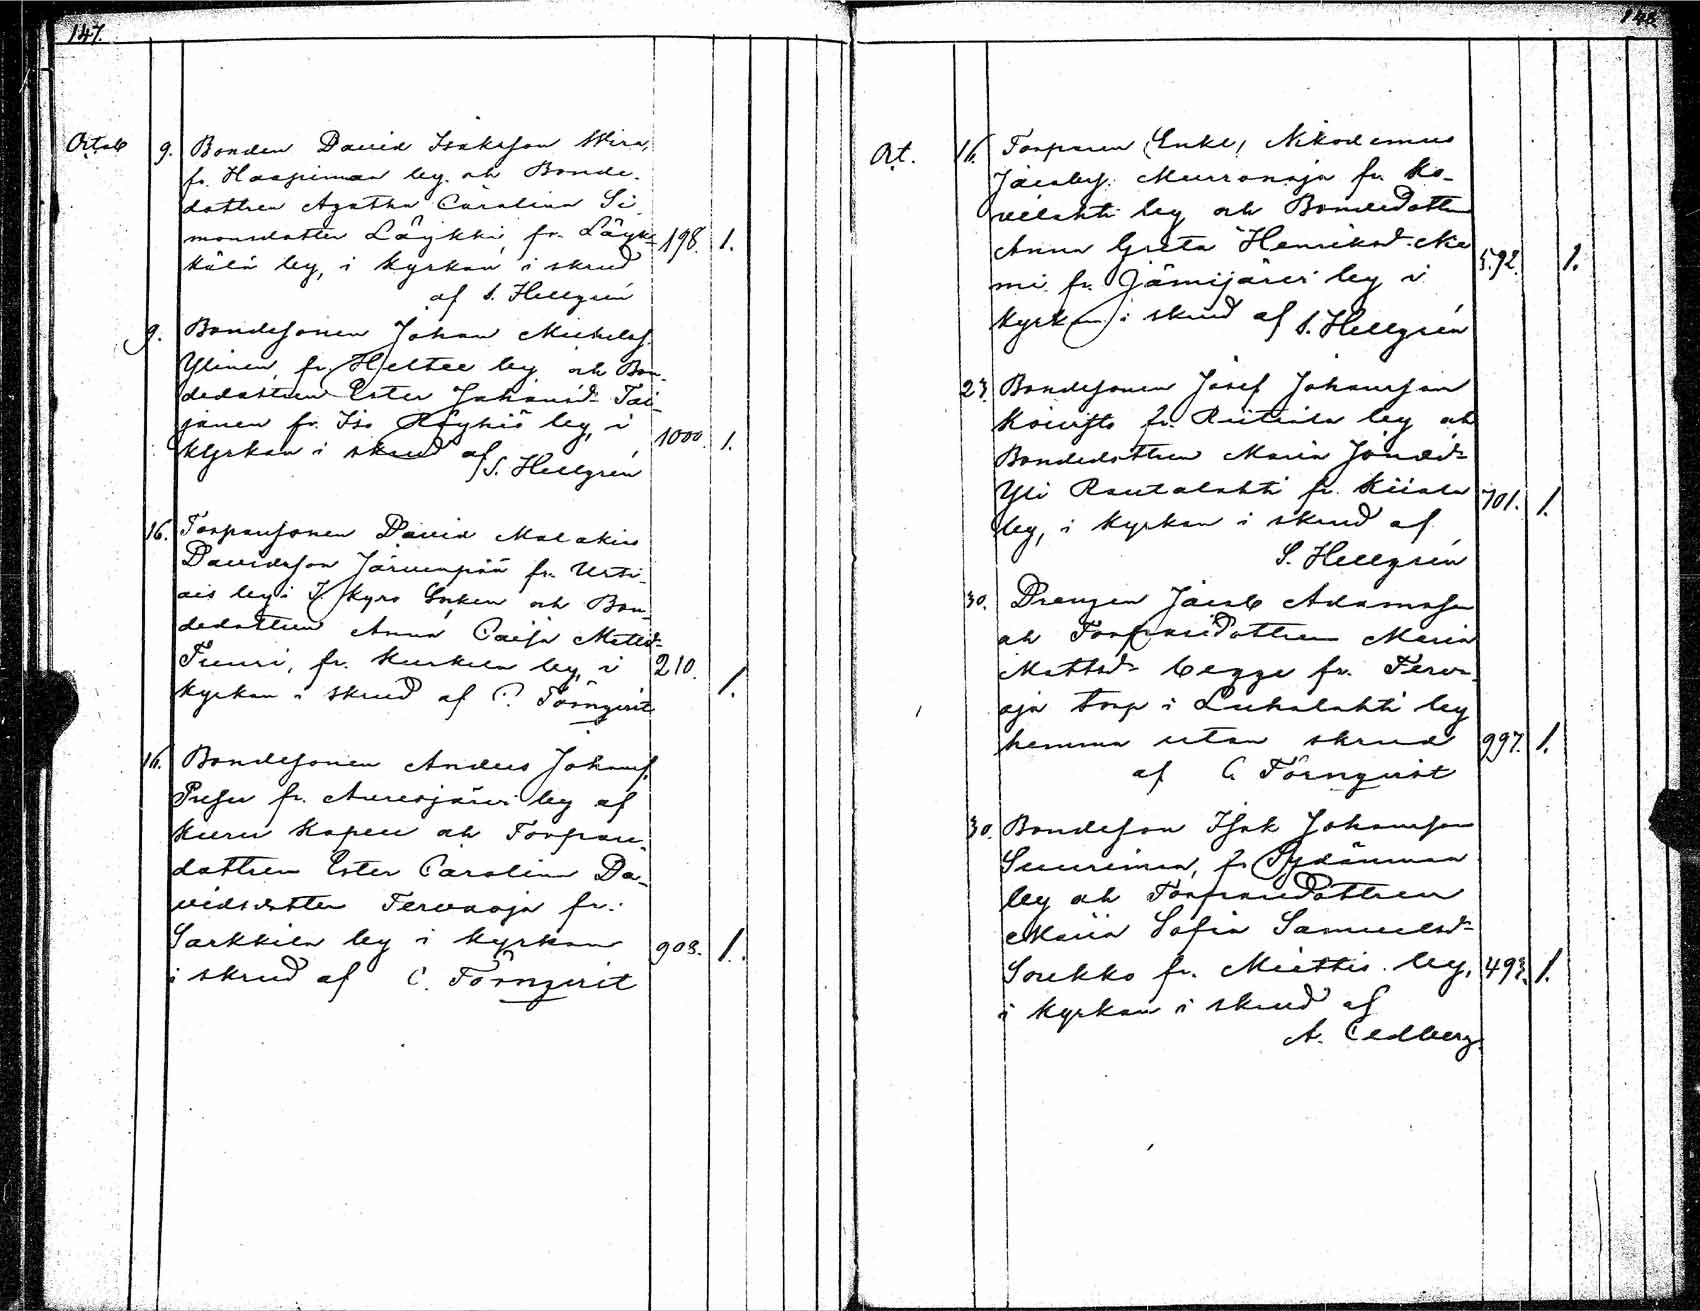 147.
Octob 9. Bonden David Isaksson Wira,
fr. Haapimaa by. och Bonde-
dottren Agatha Carolina Si-
monsdotter Läykki, fr. Läyk-
kälä by, i kyrkan i skrud 198. 1.
af S. Hellgrén
9. Bondesonen Johan Michelsf.
Ylinen, fr. Heltee by och Bon-
dedottren Ester Johansd. Tai-
janen fr. Iso Röyhiö by, i
kyrkan i skrud af 1000. 1.
S. Hellgrén
16. Torparesonen David Malakias
Davidsson Järvenpää fr. Urti-
ais by i I. Kyro Socken och Bon-
dedottren Anna Caisa Mattsd.
Tuuri, fr. Kurkela by, i 210.
kyrkan i skrud af C. Törnqvist 1.
16. Bondesonen Anders Johansf.
fr. Aurejärvi by af
Kuru Kapell och Torpare-
dottren Ester Carolina Da-
vidsdotter Tervaoja fr.
Sarkkila by i kyrkan 903. 1.
i skrud af C. Törnqvist
148
Oct. 16. Torparen (Enkl) Nikodemus
Jacobsf. Murronoja fr. Ko-
vilahti by och Bondedottren
Anna Greta Henriksd. Nie-
mi fr. Jämijärvi by i 592. 1.
kyrkan i skrud af S. Hellgrén
23. Bondesonen Josef Johansson
Koivisto fr. Riitiala by och
Bondedottren Maria Jonæd.
Yli Rautalahti fr. Kiiala 701. 1.
by, i kyrkan i skrud af
S. Hellgrén
30. Drengen Jacob Adamsson
och Torparedottren Maria
Mattsd. begge fr. Terva-
oja torp i Luhalahti by
hemma utan skrud 997. 1.
af C. Törnqvist
30. Bondeson Isak Johansson
Suurimaa, fr. Sydänmaa
by och Torparedottren
Maria Sofia Samuelsd.
Soukko fr. Miettis by, 493. 1.
i kyrkan i skrud af
A. Cedberg.